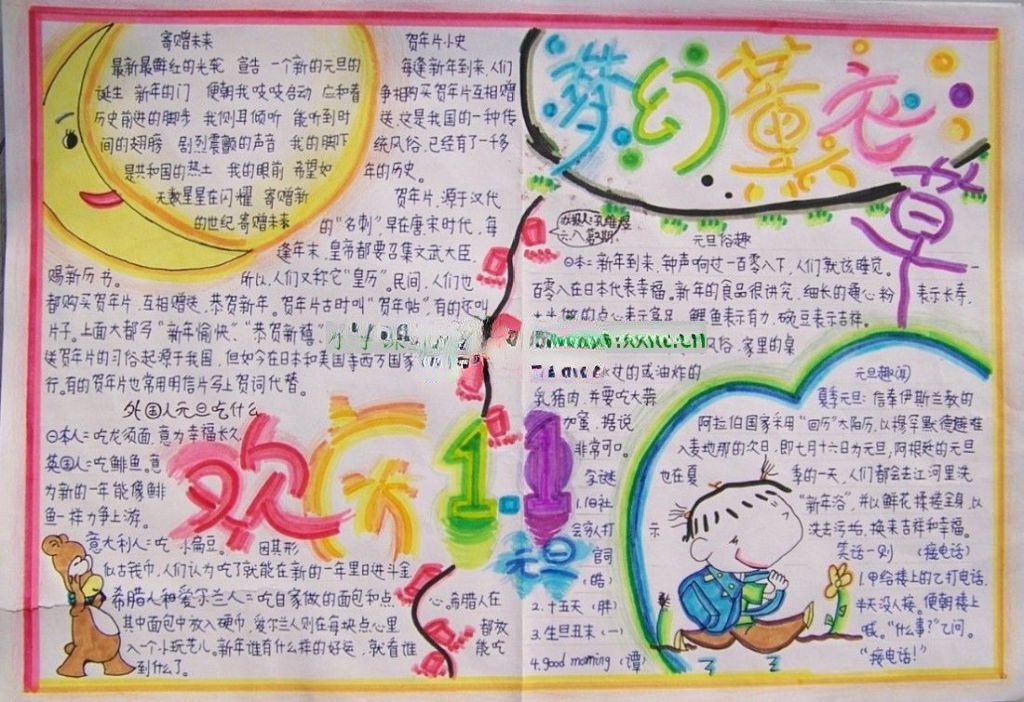 寄赠未来
最新最鲜红的光轮 宣告 一个新的元旦的
诞生 新年的门 便朝我吱吱启动 应和着
历史前进的脚步 我侧耳倾听 能听到时
间的翅膀 剧烈震颤的声音 我的脚下
是共和国的热土 我的眼前 希望如
天数星星在闪耀 寄赠新
的世纪 寄赠未来
贺年片小史
每逢新年到来，人们
争相购买贺年片互相赠
送，这是我国的一种传
统风俗，已经有了一千多
年的历史。
贺年片，源于汉代
的“名刺”早在唐宋时代，每
逢年末，皇帝都要召集文武大臣，
赐新历书。 所以，人们又称它“皇历”。民间，人们也
都购买贺年片，互相赠送，恭贺新年。贺年片古时叫“贺年帖”，有的还叫
片子。上面大都写“新年愉快”、“恭贺新禧”
送贺年片的习俗起源于我国，但如今在日本和美国等西方国家
行。有的贺年片也常用明信片写上贺词代替。
外国人元旦吃什么
日本人：吃龙须面，意为幸福长久
英国人：吃鲱鱼。意
为新的一年能像鲱
鱼一样力争上游。
意大利人：吃 小扁豆。 因其形
似古钱巾，人们认为吃了就能在新的一年里日进斗金
希腊人和爱尔兰人：吃自家做的面包和点 心。希腊人在
其中面包中放入硬巾，爱尔兰人则在每块点心里 都放
入一个小玩艺儿。新年谁有什么样的好运，就看谁 能吃
到什么了。
欢乐
1.1
元旦
梦幻薰衣草
元旦俗趣
日本：新年到来，钟声响过一百零八下，人们就该睡觉。一
百零八在日本代表幸福。新年的食品很讲究，细长的通心粉 表示长寿，
做的点心表示富足 鲤鱼表示有力，碗豆表示吉祥。
风俗，家里的桌
的或油炸的
乳猪肉，并要吃大蒜
加蜜，据说
非常可口。
字谜
1.旧社
会穷人打
官司
（皓）
2.十五天（胖）
3.生旦丑末（一）
4.good morning（谭）
元旦趣闻
夏季元旦：信奉伊斯兰教的
阿拉伯国家采用“回历”太阳历，以穆罕默德逃难
入麦地那的次日，即七月十六日为元旦，阿根廷的元旦
也在夏 季的一天，人们都会去江河里洗
“新年浴”，并以鲜花揉搓全身，以
示 洗去污垢，换来吉祥和幸福。
笑话一则 （接电话）
1.甲给楼上的乙打电话，
半天没人接。便朝楼上
喊。“什么事？”乙问。
“接电话！”